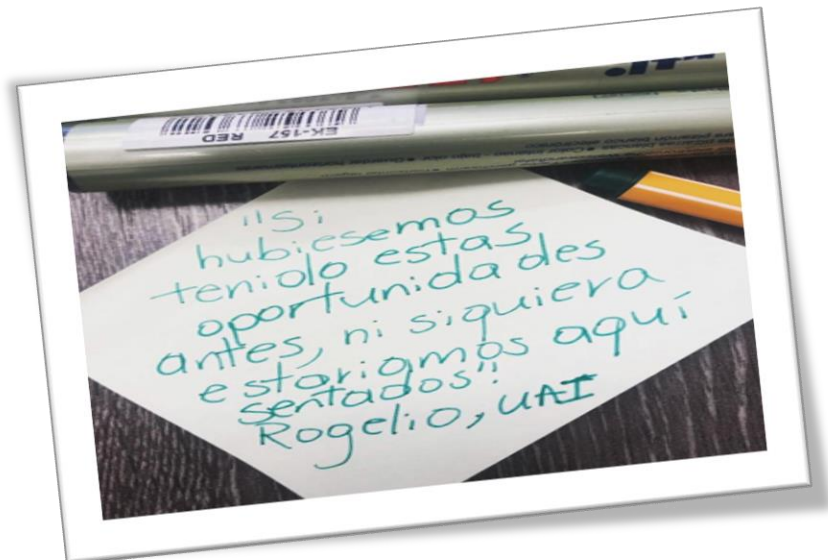 EK-157 RED
"Si
hubiesemos
tenido estas
oportunidades
antes, ni siquiera
estariamos aquí
sentados".
Rogelio, UAI